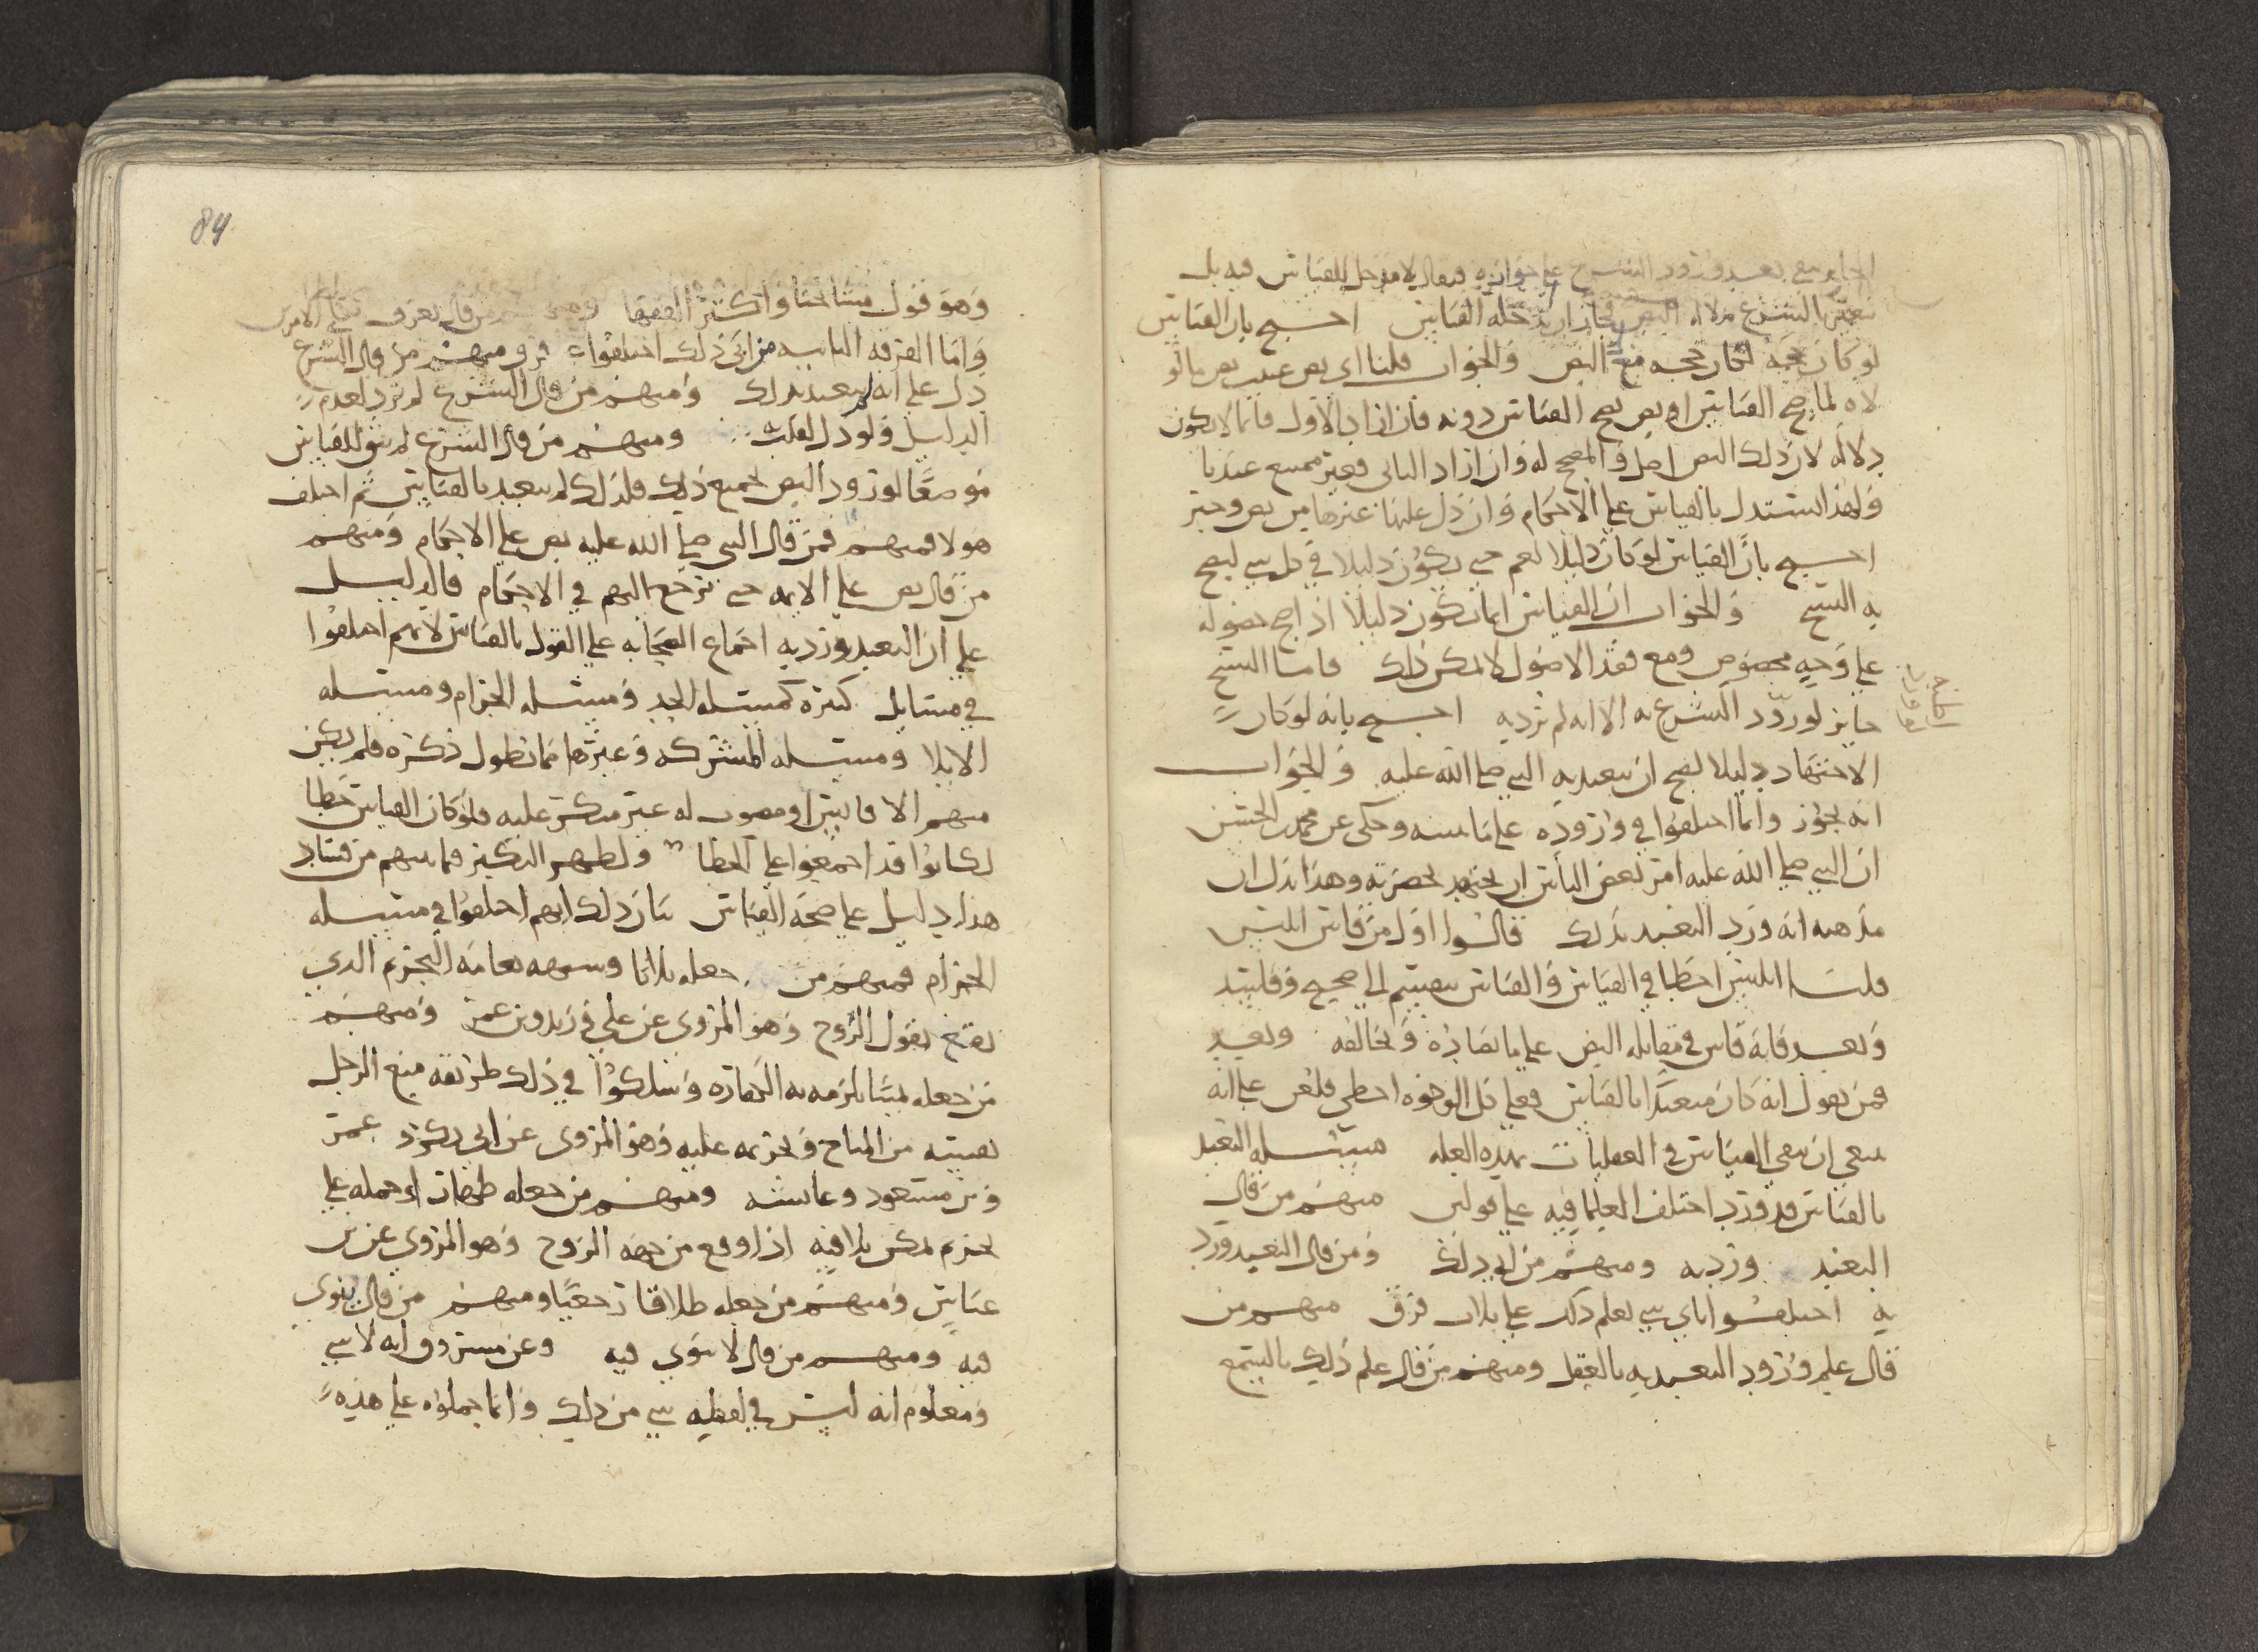 بعد ورود الشرع على جوازه فيقال لا مدخل للقياس فيه بل
بالشرع النص فجاز ان يدخله القياس احتج بان القياس
لو كان حجه لكان حجه مع النص والجواب قلنا اي نص عنيت نص ما لو
لاه لما صح القياس او نص يصح القياس دونه فان اراد الاول فانما لا يكون
دلاله لان ذلك النص اصل والمصحح له وان اراد الثاني فغير ممتنع عندنا
ولهذا يستدل بالقياس على الاحكام وان دل عليها غيرها من نص وخبر
احتج بان القياس لو كان دليلا لعم حتى يكون دليلا في كل شي ليصح
به النسخ والجواب ان القياس انما يكون دليلا اذا صح حصوله
على وجه مخصوص ومع فقد الاصول لا يمكن ذلك فاما النسخ
جايز لو ورد الشرع به الا انه لم يرد به احتج بانه لو كان
الاجتهاد دليلا لصح ان يتعبد به النبي صلى الله عليه والجواب
انه يجوز وانما اختلفوا في وروده على ما نبينه وحكي عن محمد بن الحسن
ان النبي صلى الله عليه امر بعض الناس ان يجتهد بحضرته وهذا يدل ان
مذهبه انه ورد التعبد بذلك قالوا اول من قاس ابليس
قلنا ابليس اخطا في القياس والقياس ينقسم الى صحيح وفاسد
وبعد فانه قاس في مقابله النص على ما يضاده ويخالفه وبعد
فمن يقول انه كان متعبدا بالقياس فعلى كل الوجوه اخطى فليس على انه
ينبغي ان ينفي القياس في العقليات بهذه العله مسله التعبد
بالقياس قد ورد اختلف العلما فيه على قولين منهم من قال
التعبد ورد به ومنهم من ابى ذلك ومن قال التعبد ورد
به اختلفوا باي شي يعلم ذلك على ثلاث فرق منهم من
قال علم ورود التعبد به بالعقل ومنهم من قال علم ذلك بالسمع
84
وهو قول مشايخنا واكثر الفقها ومنهم من قال يعرف بكلا الامرين
واما الفرقه الثانيه من ابى ذلك اختلفوا فرق ومنهم من قال الشرع
دل على انه لم يتعبد بذلك ومنهم من قال الشرع لم يرد لعدم
الدليل ولو دل لقلت ومنهم من قال الشرع لم يبق للقياس
موضعا لورود النص لجميع ذلك فلذلك لم يتعبد بالقياس ثم اختلف
هولا فمنهم فمن قال النبي صلى الله عليه نص على الاحكام ومنهم
من قال نص على الايمه حتى نرجع اليهم في الاحكام فالدليل
على ان التعبد ورد به اجماع الصحابه على القول بالقياس لانهم اختلفوا
في مسايل كثيره كمسله الجد ومسله الحرام ومسله
الايلا ومسله المشركه وغيرها مما يطول ذكره فلم يكن
منهم الا قايس او مصوب له غير منكر عليه فلو كان القياس خطا
لكانوا قد اجمعوا على الخطا ولظهر النكير فما بينهم من فساد
هذا دليل على صحه القياس بيان ذلك انهم اختلفوا في مسله
الحرام فمنهم من جعله ثلاثا وشبهه بغايه التحريم الذي
يقع بقول الزوج وهو المروي عن علي وزيد وبن عمر ومنهم
من جعله يمينا يلزمه به الكفاره وسلكوا في ذلك طريقه منع الرجل
نفسه من المباح وتحريمه عليه وهو المروي عن ابي بكر و عمر
وبن مسعود وعايشه ومنهم من جعله ظهارا وحمله على
تحريم يمكن تلافيه اذا وقع من جهه الزوج وهو المروي عن بن
عباس ومنهم من جعله طلاقا رجعيا ومنهم من قال ينوي
فيه ومنهم من قال لا ينوي فيه وعن مسروق انه لا شي
ومعلوم انه ليس في لفظه شي من ذلك وانما حملوه على هذه